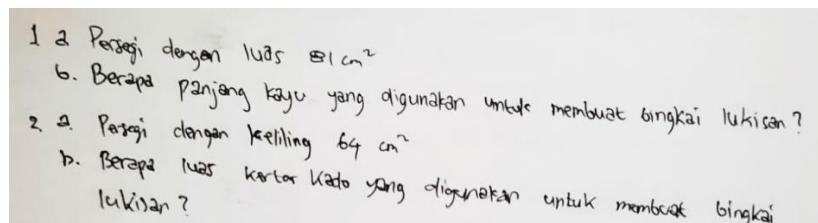 1 a Persegi dengan luas 81 cm²
b. Berapa panjang kayu yang digunakan untuk membuat bingkai lukisan?
2. a. Persegi dengan keliling 64 cm²
b. Berapa luas kertas kado yang digunakan untuk membuat bingkai
lukisan?